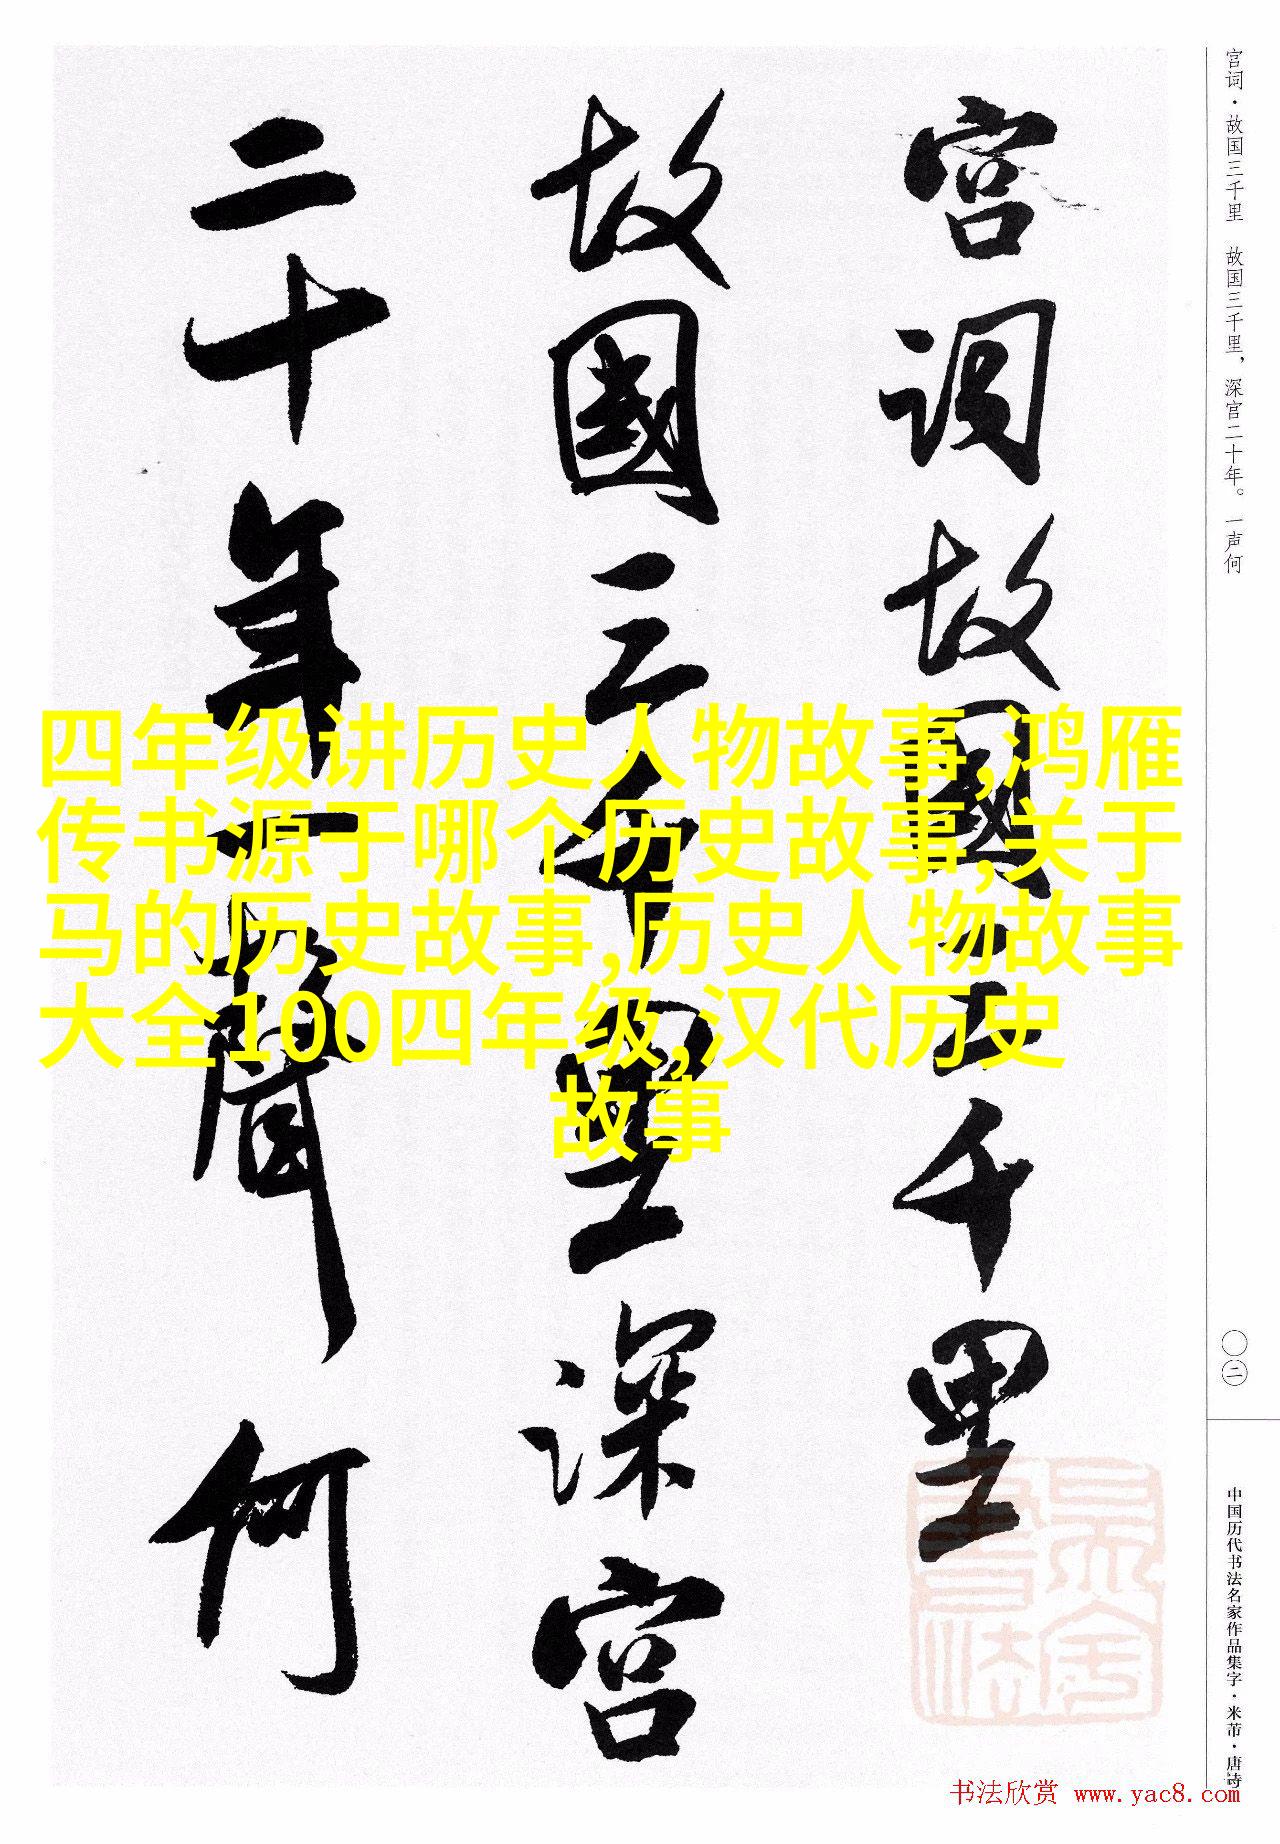 宫词·故国三千里　故国三千里，深宫二十年。一声何
宫词故國三千里
故國三千里深宫
二十年一聲何
四年级讲历史人物故事,鸿雁
传书源于哪个历史故事,关于
马的历史故事,历史人物故事
大全100四年级,汉代历史
故事
〇二
中国历代书法名家作品集字·米芾·唐诗
书法欣赏 www.yac8.com